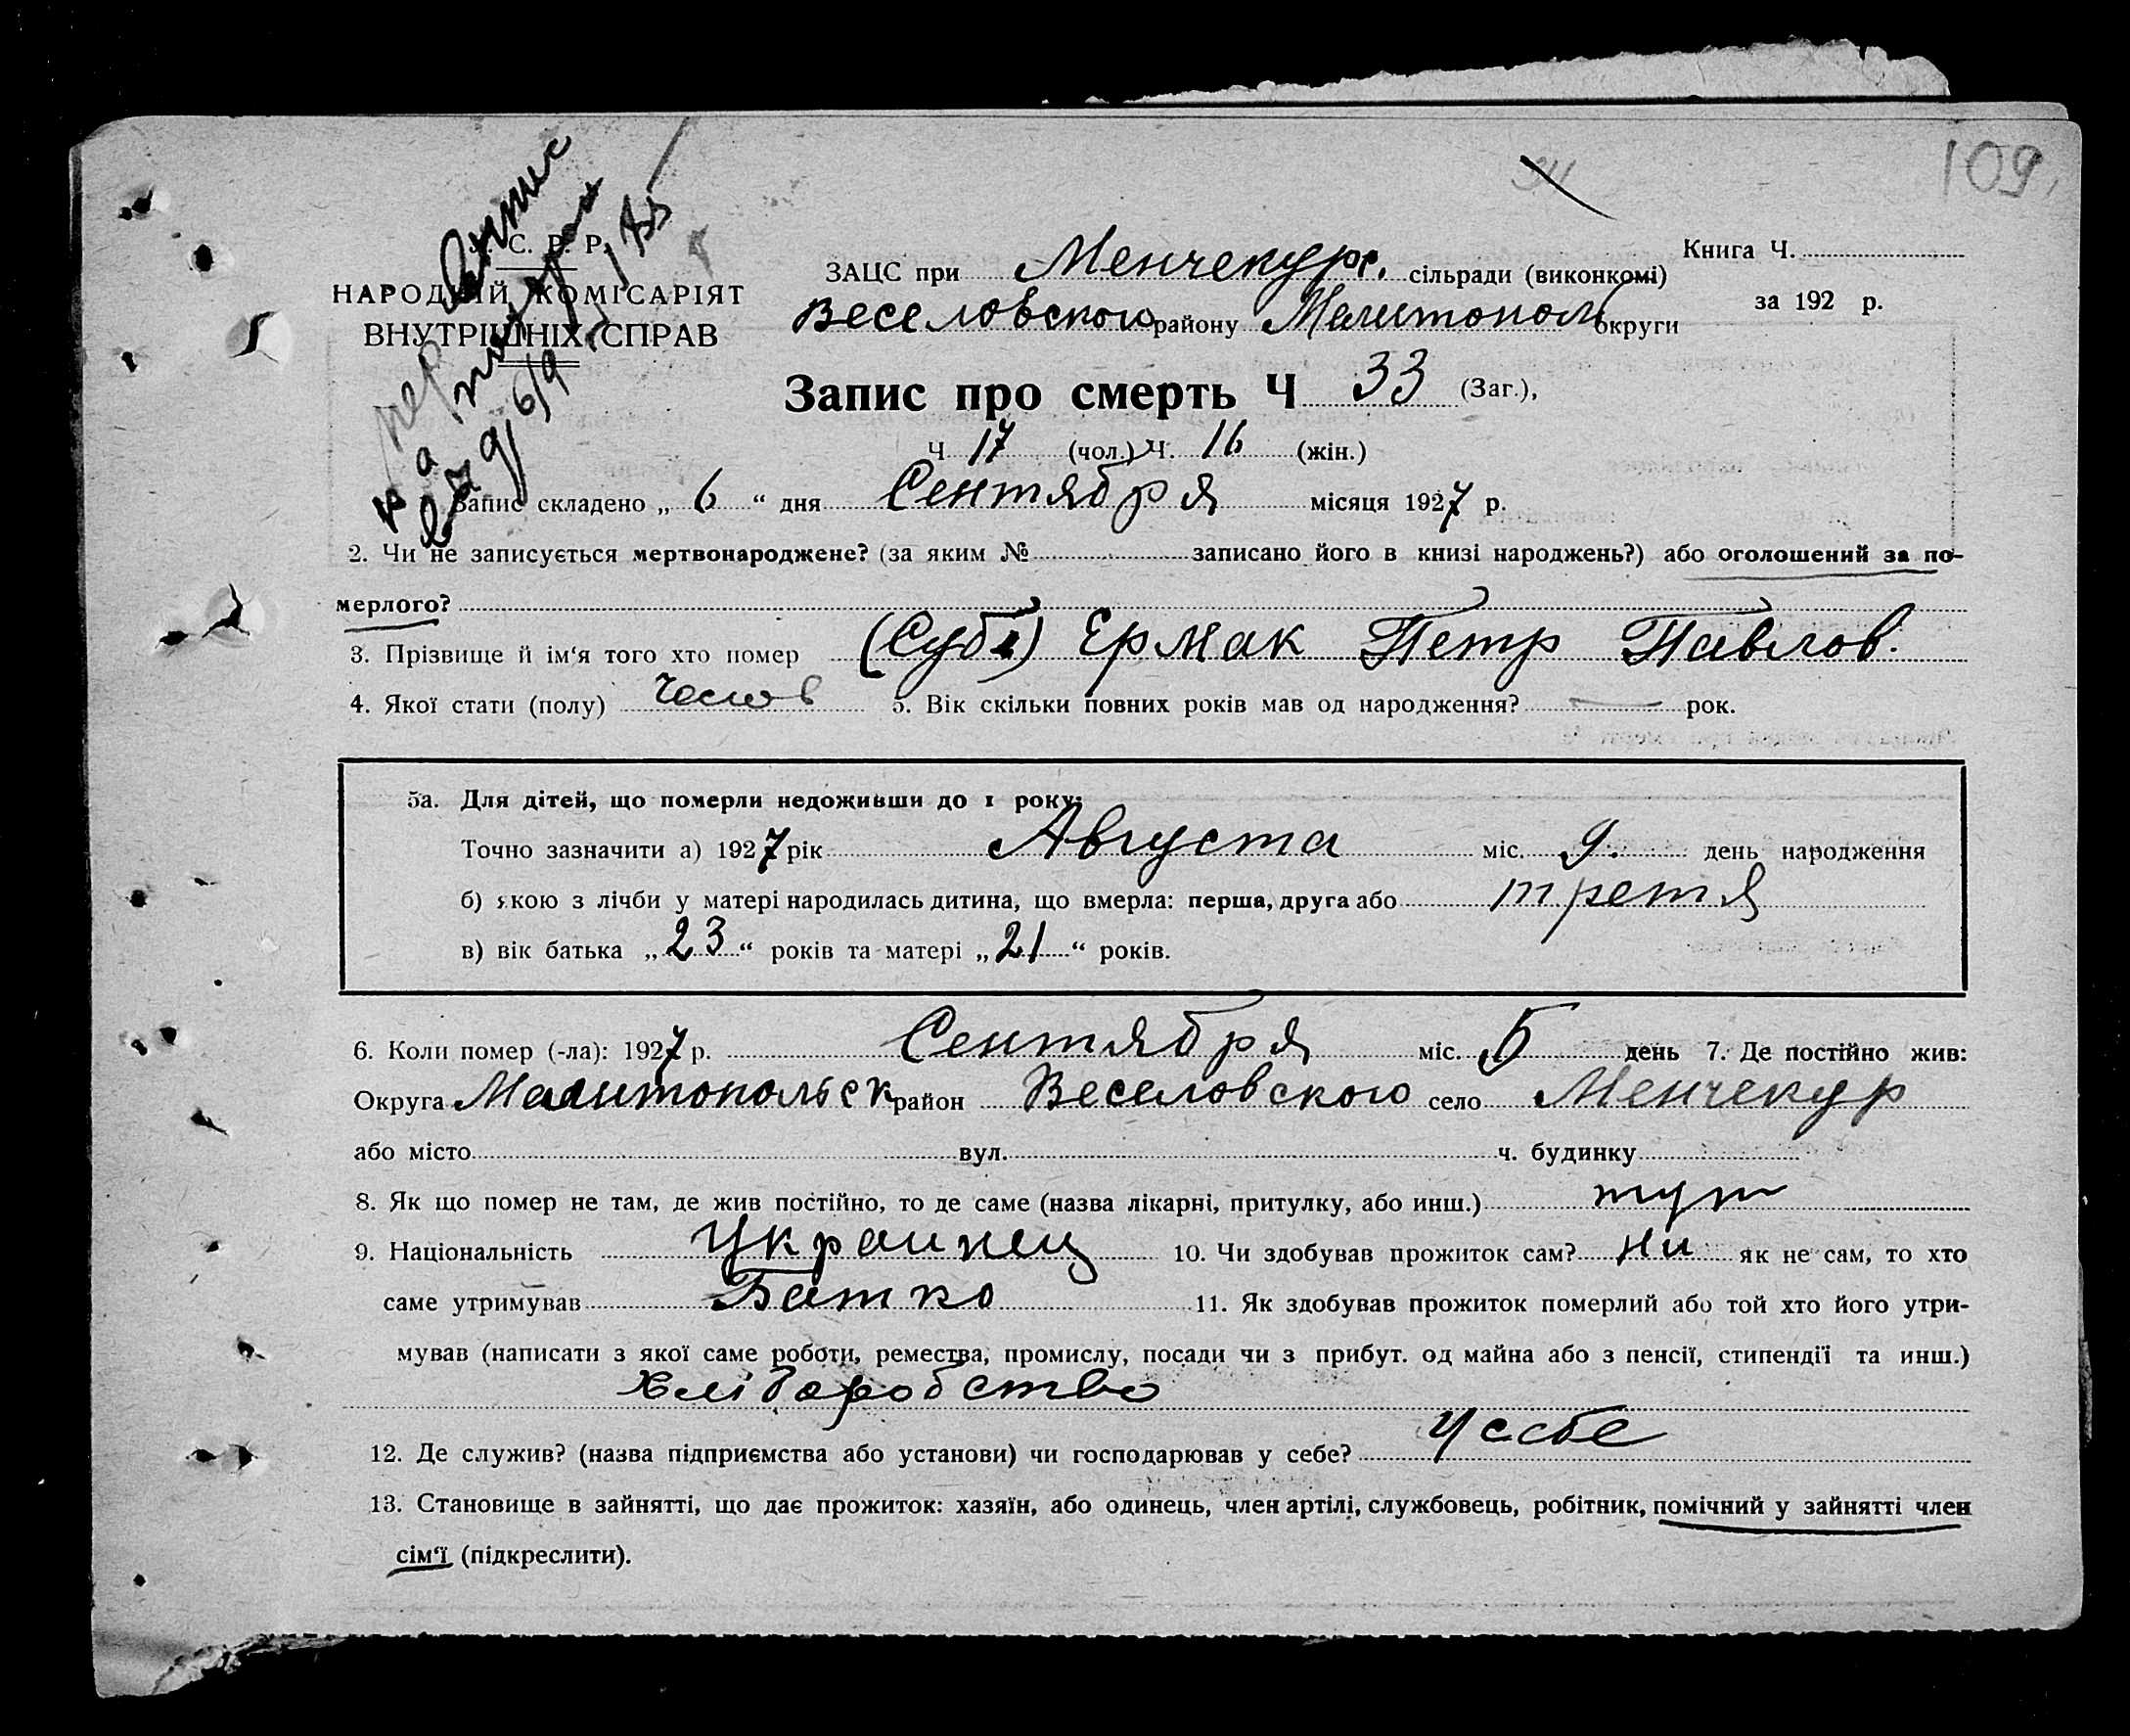 109
С. Р. Р.
НАРОДНІЙ КОМІСАРІЯТ
ВНУТРІШНІХ СПРАВ
Книга Ч.
ЗАЦС при Менчекурс. сільради (виконкомі)
за 192 р.
Веселовского району Мелитополь округи
Запис про смерть Ч 33 (Заг.),
Ч 17 (чол.) Ч. 16 (жін.)
Запис складено „ 6 “ дня Сентября місяця 1927 р.
2. Чи не записується мертвонароджене? (за яким № записано його в книзі народжень?) або оголошений за по-
мерлого?
3. Прізвище й ім‘я того хто помер (Суб.) Ермак Петр Павлов.
4. Якої стати (полу) Чолов 5. Вік скільки повних років мав од народження? — рок.
5а. Для дітей, що померли недоживши до 1 року:
Точно зазначити а) 1927 рік Августа міс. 9. день народження
б) якою з лічби у матері народилась дитина, що вмерла: перша, друга або третя
в) вік батька „ 23 “ років та матері „ 21 “ років.
6. Коли помер (-ла): 1927 р. Сентября міс. 5 день 7. Де постійно жив:
Округа Мелитопольск район Веселовского село Менчекур
або місто вул. ч. будинку
8. Як що помер не там, де жив постійно, то де саме (назва лікарні, притулку, або инш.) тут
9. Національність Украинец 10. Чи здобував прожиток сам? Ни як не сам, то хто
саме утримував Батко 11. Як здобував прожиток померлий або той хто його утри-
мував (написати з якої саме роботи, ремества, промислу, посади чи з прибут. од майна або з пенсії, стипендії та инш.)
хліборобство
12. Де служив? (назва підприємства або установи) чи господарював у себе? У себе
13. Становище в зайнятті, що дає прожиток: хазяїн, або одинець, член артілі, службовець, робітник, помічний у зайнятті член
сім‘ї (підкреслити).